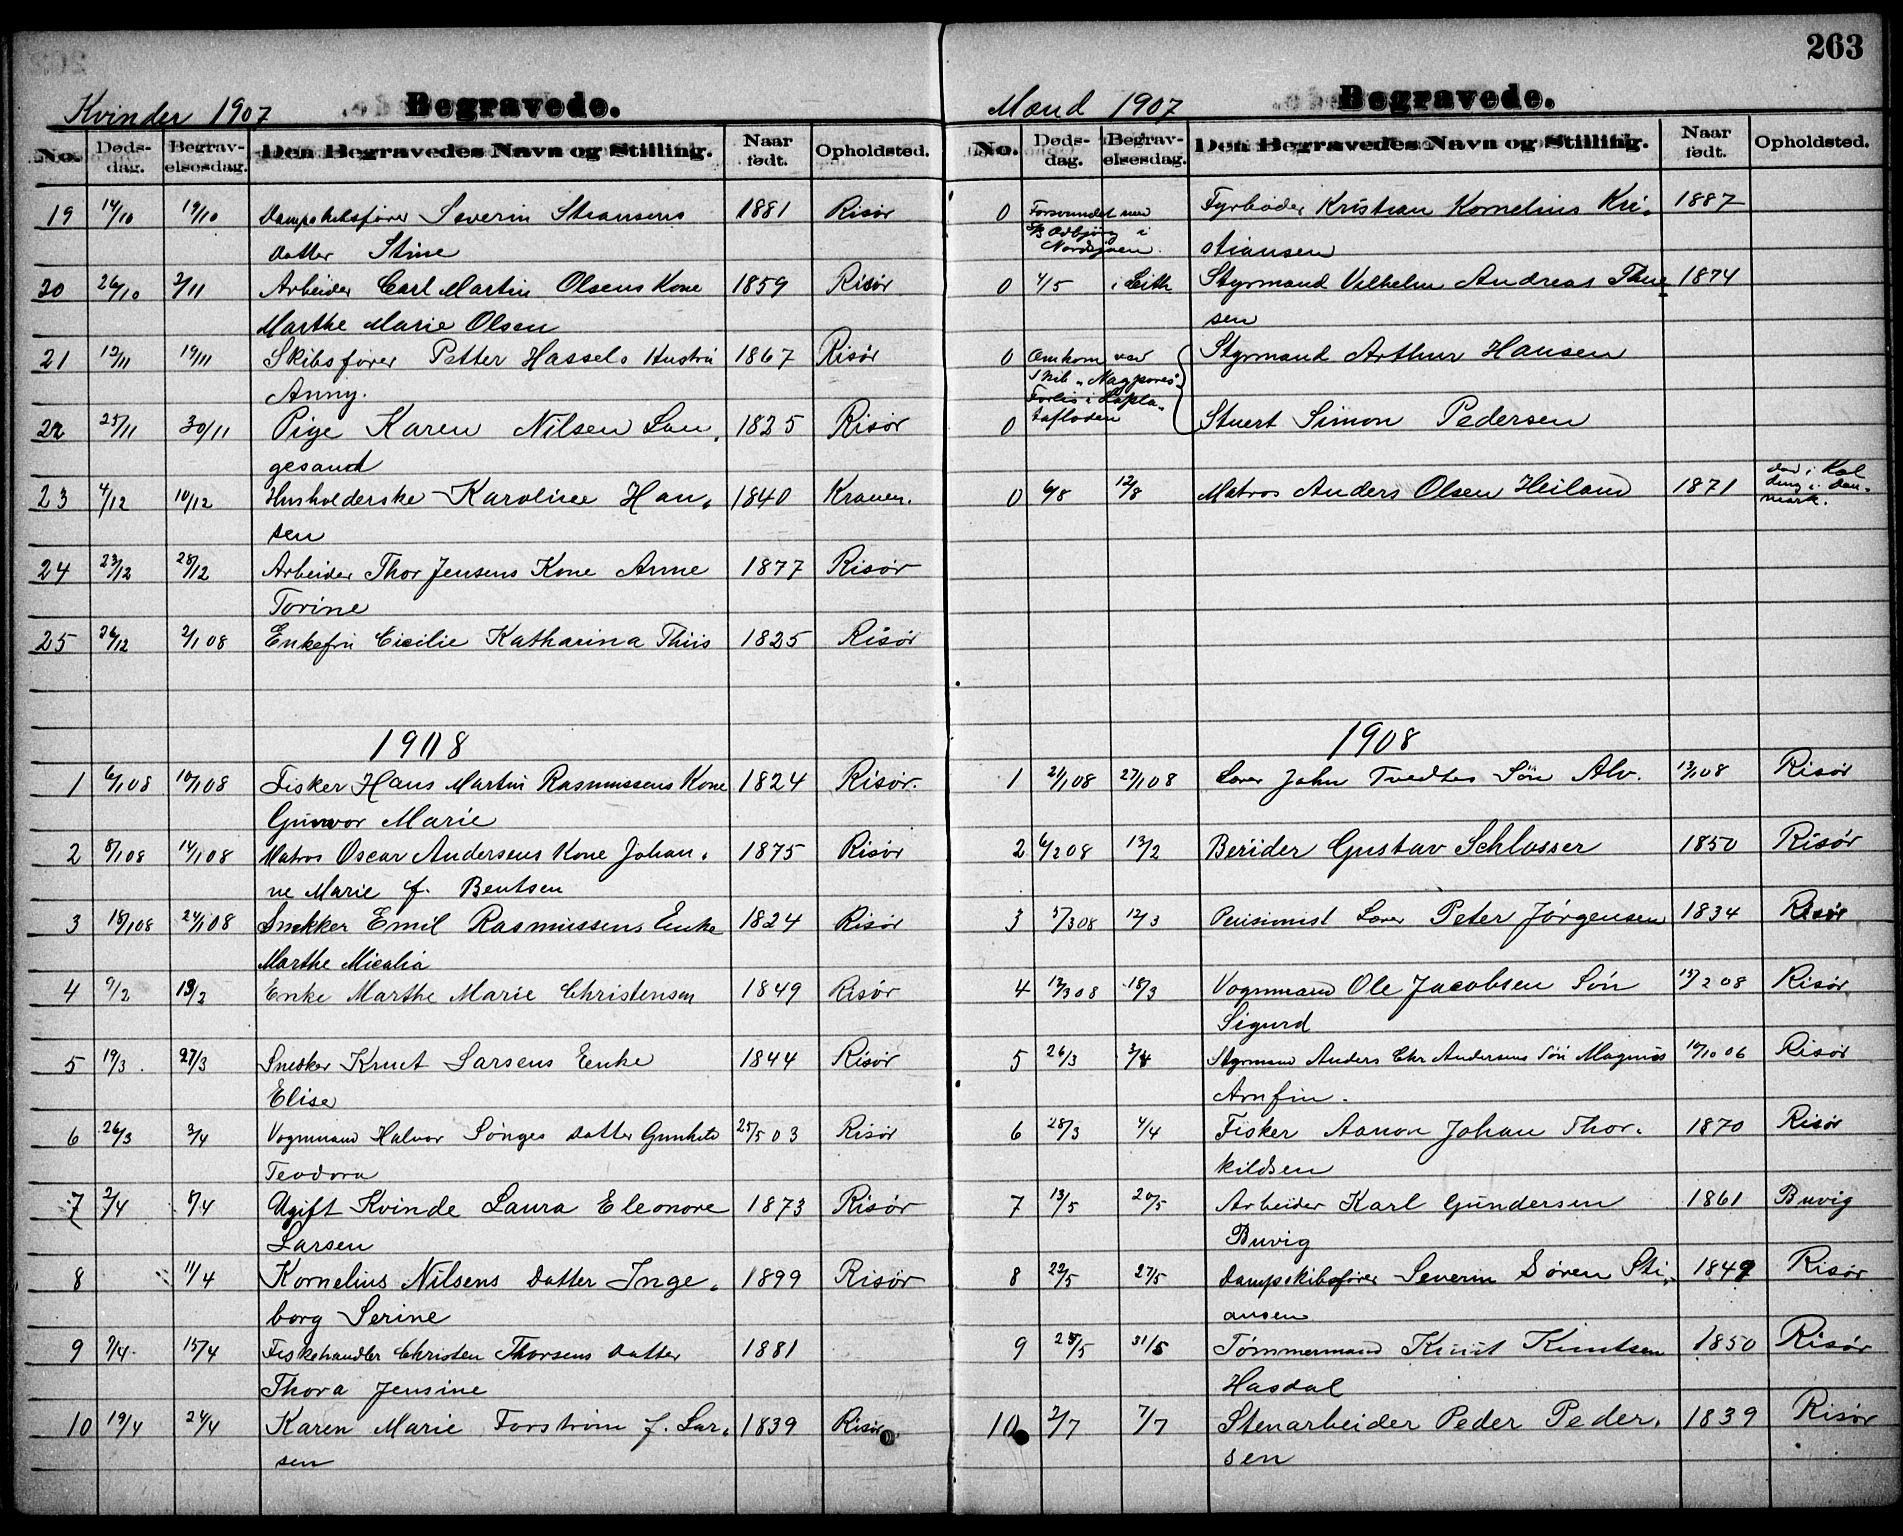 263
Kvinder 1907 Begravede.
No. Døds-dag. Begrav-elsesdag. Den Begravedes Navn og Stilling. Naar født. Opholdsted.
19 14/10 19/10 Dampskibsfører Severin Stiansens 1881 Risør
Datter Stine
20 26/10 2/11 Arbeider Carl Martin Olsens Kone 1859 Risør
Marthe Marie Olsen
21 12/11 19/11 Skibsfører Petter Hassels Hustru 1867 Risør
Anny.
22 25/11 30/11 Pige Karen Nilsen Lan- 1825 Risør
gesand
23 4/12 10/12 Husholderske Karoline Han- 1840 Kranen.
sen
24 23/12 28/12 Arbeider Thor Jensens Kone Anne 1877 Risør
Torine
25 26/12 2/1 08 Enkefru Cicilie Katharina Thiis 1825 Risør
1908
1 6/1 08 10/1 08 Fisker Hans Martin Rasmussens Kone 1824 Risør.
Gunvor Marie
2 8/1 08 14/1 08 Matros Oscar Andersens Kone Johan- 1875 Risør
ne Marie f. Bentsen
3 18/1 08 24/1 08 Snekker Emil Rasmussens Enke 1824 Risør
Marthe Micalia
4 9/2 13/2 Enke Marthe Marie Christensen 1849 Risør
5 19/3 27/3 Snekker Knut Larsens Enke 1844 Risør
Elise
6 26/3 3/4 Vognmand Halvor Sønges Datter Gunhild 25/5 03 Risør
Teodora
7 2/4 8/4 Ugift Kvinde Laura Eleonore 1873 Risør
Larsen
8 11/4 Kornelius Nilsens Datter Inge- 1899 Risør
borg Serine
9 9/4 15/4 Fiskehandler Christen Thorsens Datter 1881
Thora Jensine
10 19/4 24/4 Karen Marie Forstrøm f. Lar- 1839 Risør
sen
Mænd 1907 Begravede.
No. Døds-dag. Begrav-elsesdag. Den Begravedes Navn og Stilling. Naar født. Opholdsted.
0 Forsvundet med Fyrbøder Kristian Kornelius Kri- 1887
i
Nordsjøen. stiansen
0 4/5 i Leith Styrmand Vilhelm Andreas Thue 1874
sen
0 Omkom ved Styrmand Arthur Hansen
Skib "Nagpores"
Forlis i Lapla-
0 tafloden Stuert Simon Pedersen
0 6/8 12/8 Matros Anders Olsen Heiland 1871 død i Kol
ding i Dan-
mark.
1908
1 21/1 08 27/1 08 Lærer John Tvedtes Søn Alv. 13/1 08 Risør
2 6/2 08 13/2 Berider Gustav Schlosser 1850 Risør
3 5/3 08 12/3 Pensionist Lærer Peter Jørgensen 1834 Risør
4 12/3 08 18/3 Vognmand Ole Jacobsen Søn 15/2 08 Risør
Sigurd
5 26/3 3/4 Styrmand Anders Chr Andersens Søn Magnus 10/10 06 Risør
Arnfin.
6 28/3 4/4 Fisker Aanon Johan Thor- 1870 Risør
kildsen
7 13/5 20/5 Arbeider Karl Gundersen 1861 Buvig
Buvig
8 22/5 27/5 Dampskibsfører Severin Søren Sti- 1849 Risør
ansen
9 25/5 31/5 Tømmermand Knut Knutsen 1850 Risør
Hasdal
10 2/7 7/7 Stenarbeider Peder Peder- 1839 Risør
sen